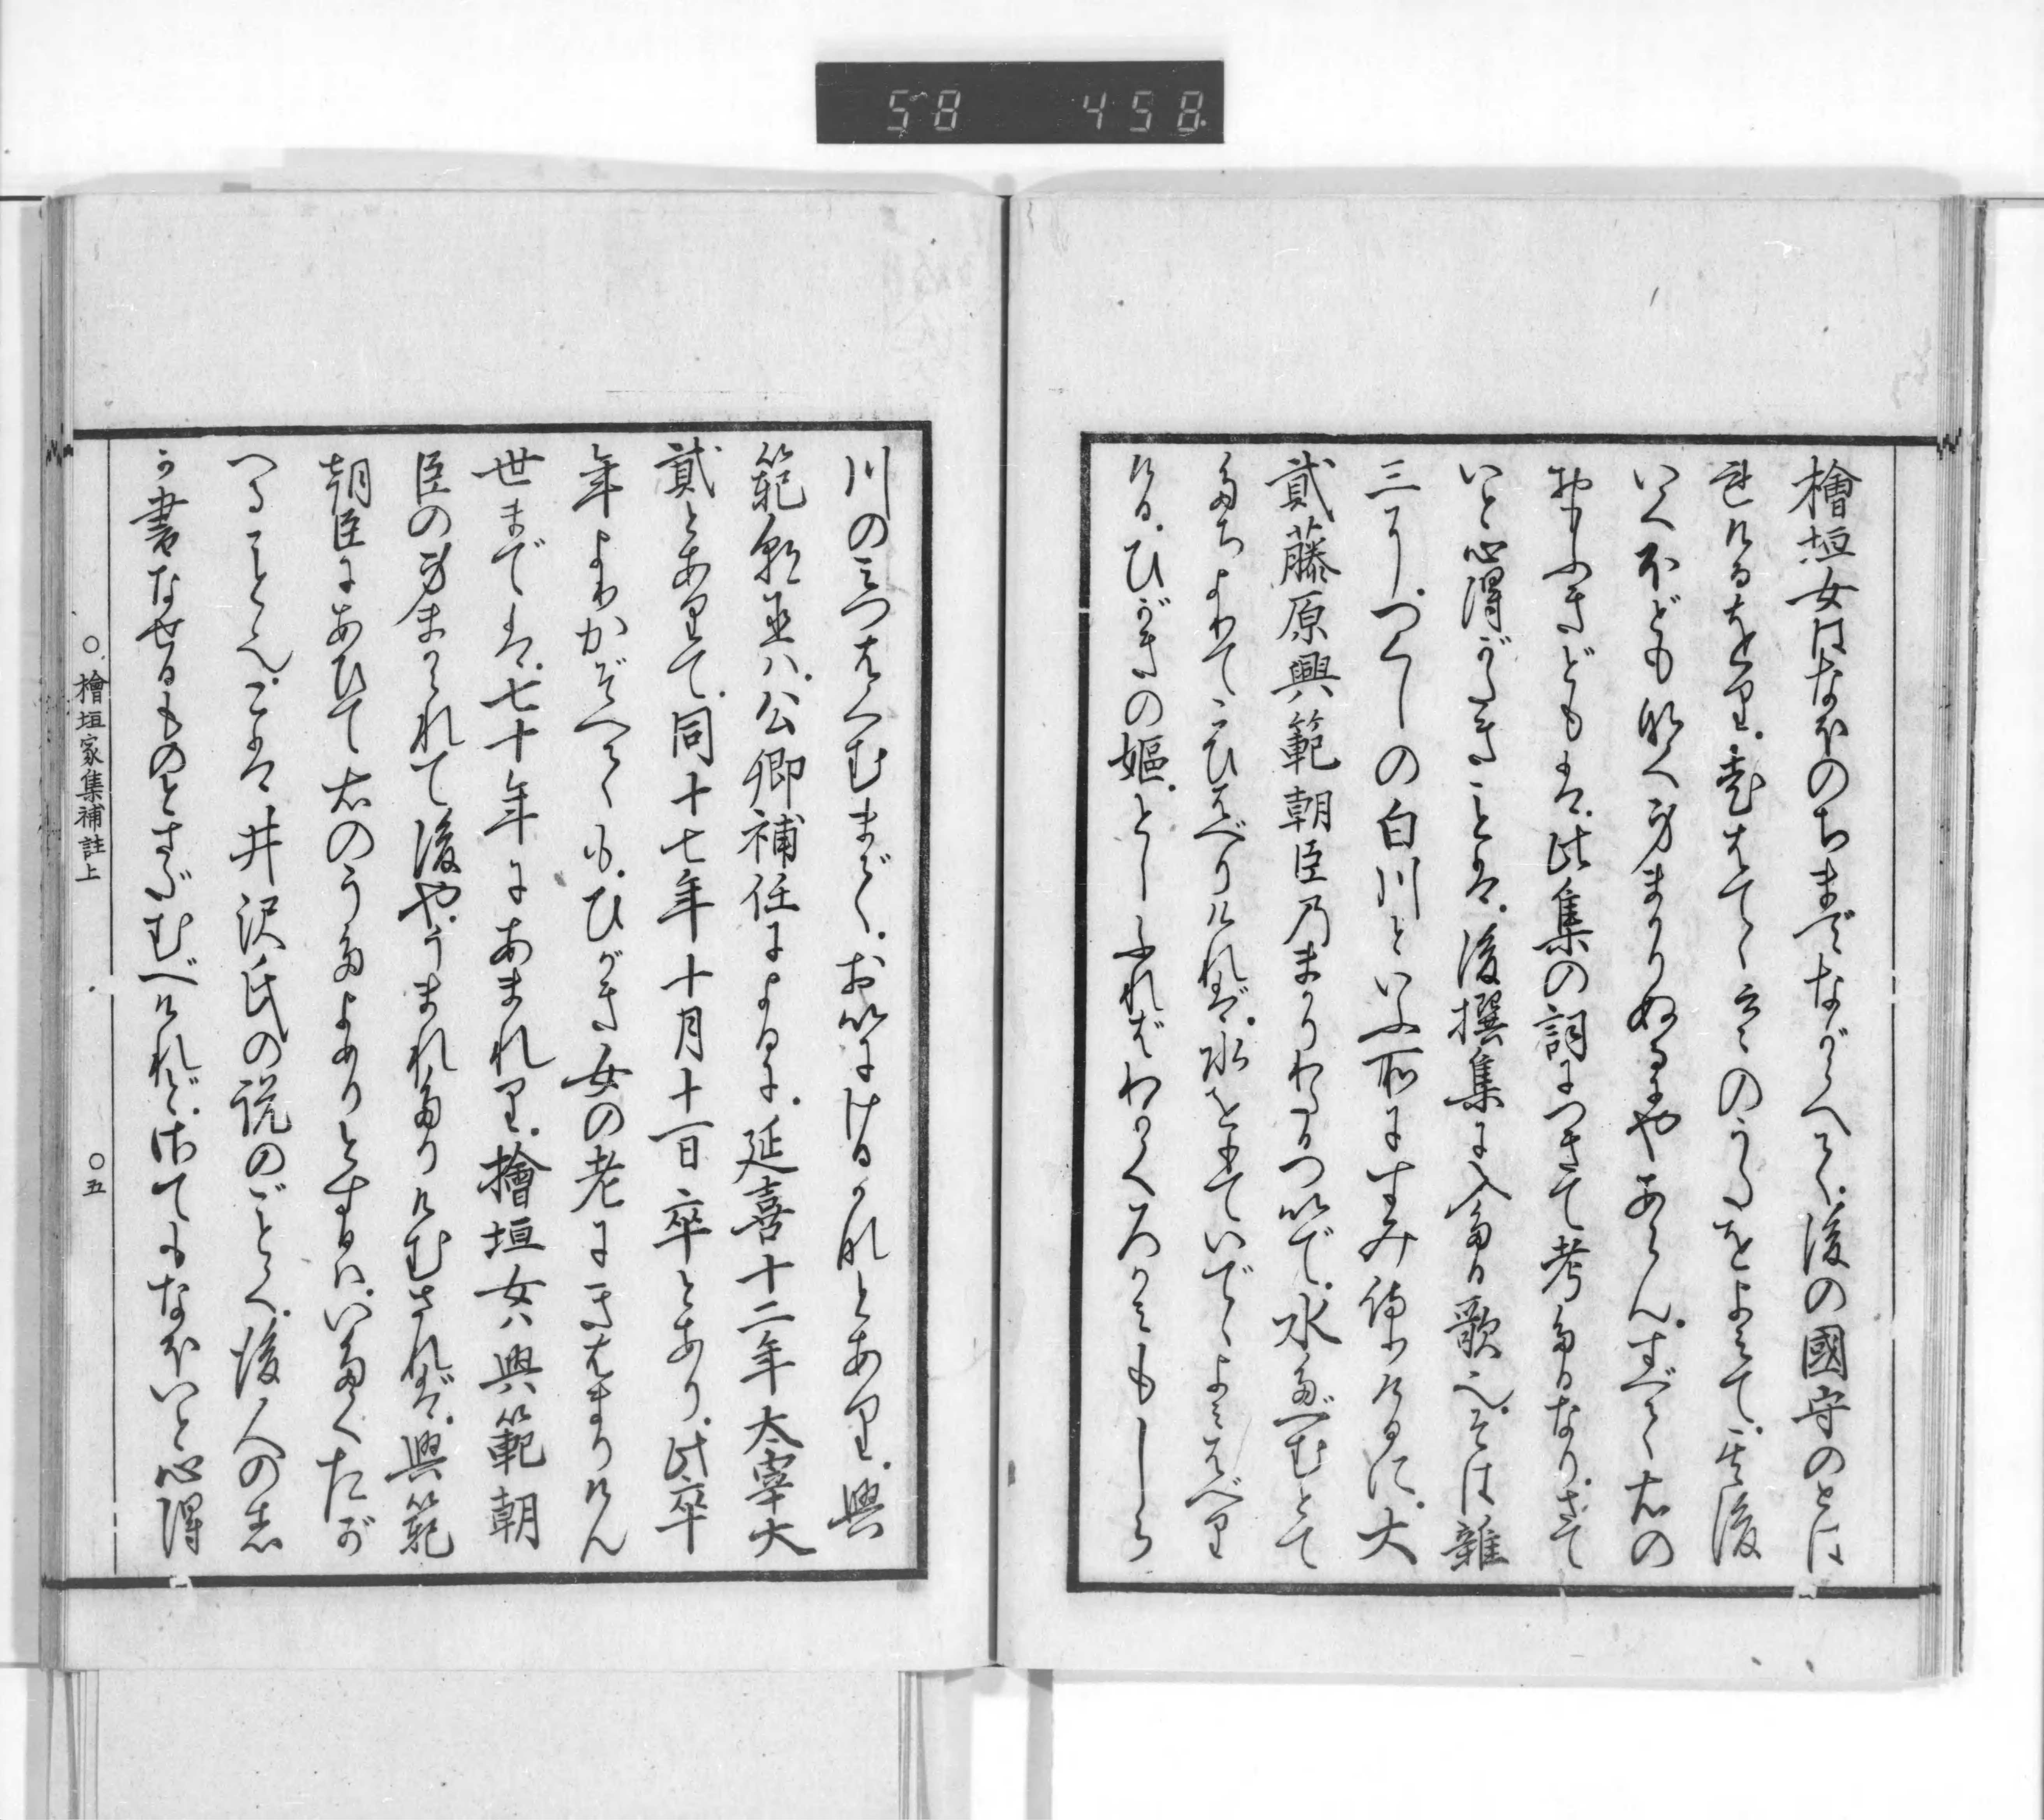 58 458
檜垣女はなほのちまでながらへて、後の國守のとは
れけるをと里、売はてゝ云々のうたをよみて、其後
いくほどもなく身まかりぬるにやあらん、すべて右の
おもふきどもは、此集の詞につきて考たるなり、さて
いと心得がたきことは、後撰集に入たる歌也、そは雑
三に、つくしの白川といふ所にすみ侍けるに、大
貳藤原興範朝臣乃まかりわたるついで、水たべむとて
たちよりて、こひはべりければ、水をもていでゝよみはべり
ける、ひがきの嫗、としふればわがくろかみもしら
川のみつはくむまで、おいにけるかなとあり、興
範朝臣ハ、公卿補任によるに、延喜十二年太宰大
貳とありて、同十七年十月十一日卒とあり、此卒
年よりかぞへても、ひがき女の老にきはまりけん
世までは、七十年にあまれり、檜垣女ハ興範朝
臣の身まかられて後や、うまれたりけむされば、興範
朝臣にあひて右のうたよめりとするハ、いたくたが
へることゝ也、こは井沢氏の説のごとく、後人の志
か書なせるものとさだむべけれど、はたなほいと心得
○檜垣家集補註上
○五